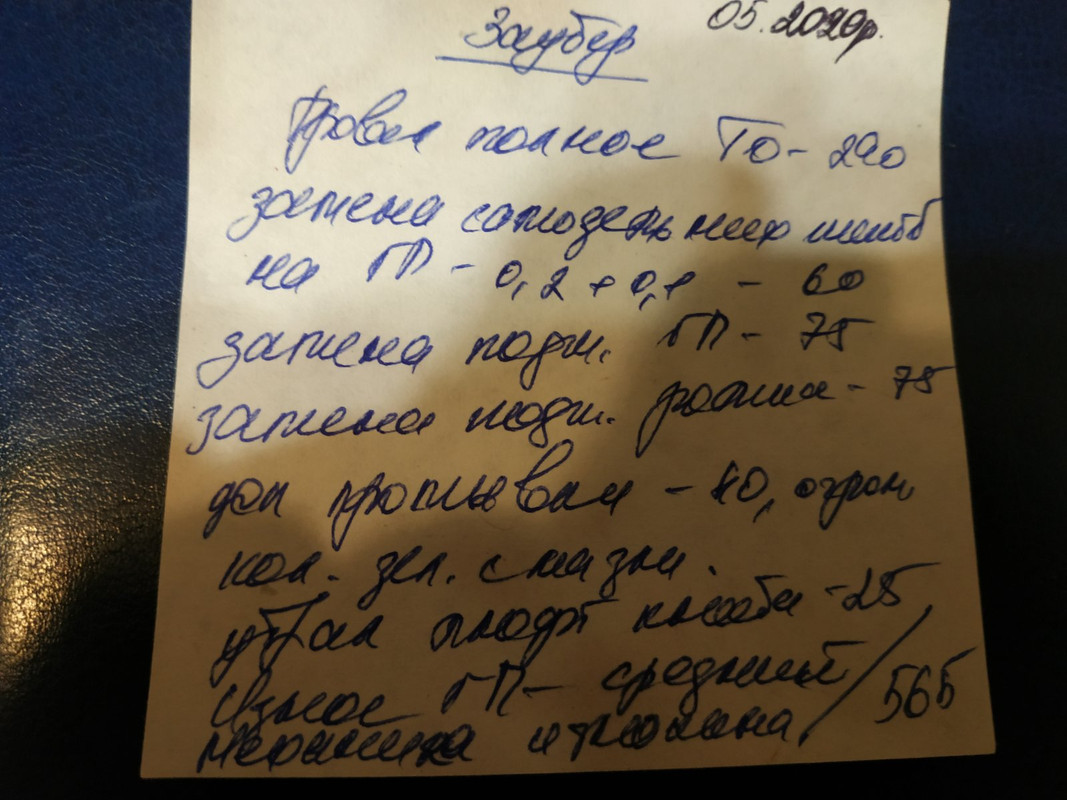 Заубер 05.2020р.
Провел полное ТО - 290
замена самодельных шайб
на ГП - 0,2 + 0,1 - 60
замена подш. ГП - 75
замена подш. ролика - 75
доп промывки - 40, огром
кол. зел. смазки.
убрал люфт кнобы - 25
износ ГП - средний / 565
механика отложена